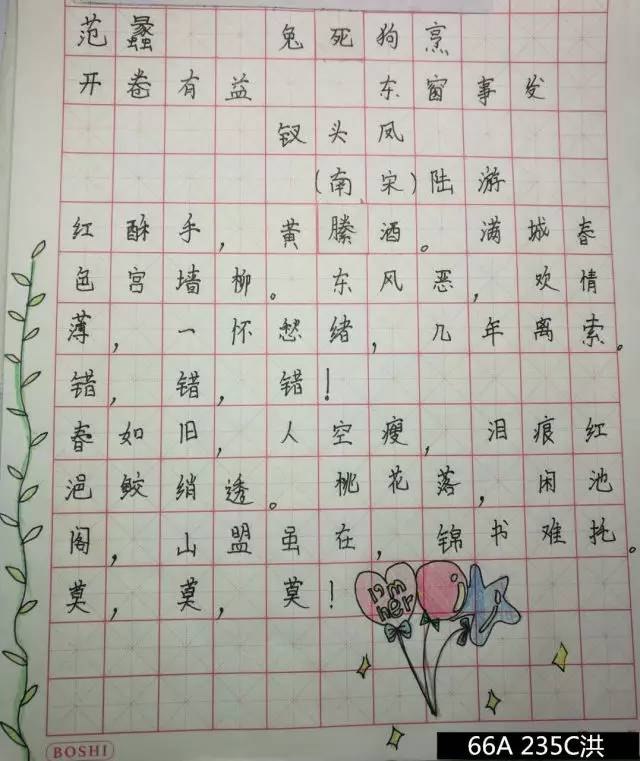 范蠡 兔死狗烹
开卷有益 东窗事发
钗头凤
(南宋)陆游
红酥手,黄縢酒。满城春
色宫墙柳。东风恶,欢情
薄,一怀愁绪,几年离索。
错,错,错!
春如旧,人空瘦,泪痕红
浥鲛绡透。桃花落,闲池
阁,山盟虽在,锦书难托。
莫,莫,莫!
I'm
her
BOSHI
66A 235C洪